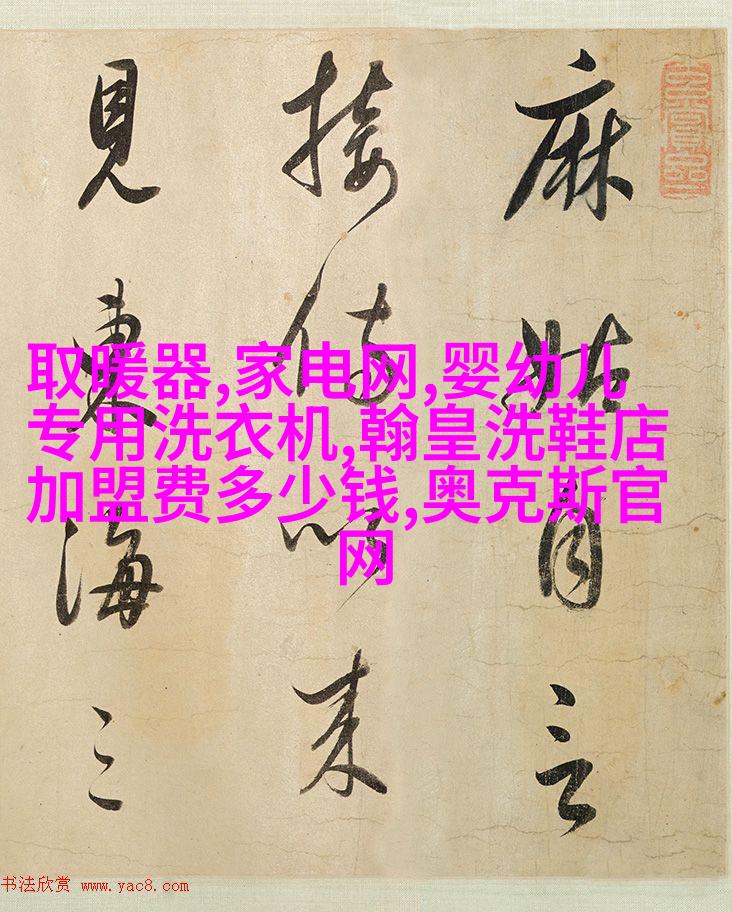 麻姑自言
接侍以来
見東海三
取暖器,家电网,婴幼儿
专用洗衣机,翰皇洗鞋店
加盟费多少钱,奥克斯官
网
书法欣赏 www.yac8.com